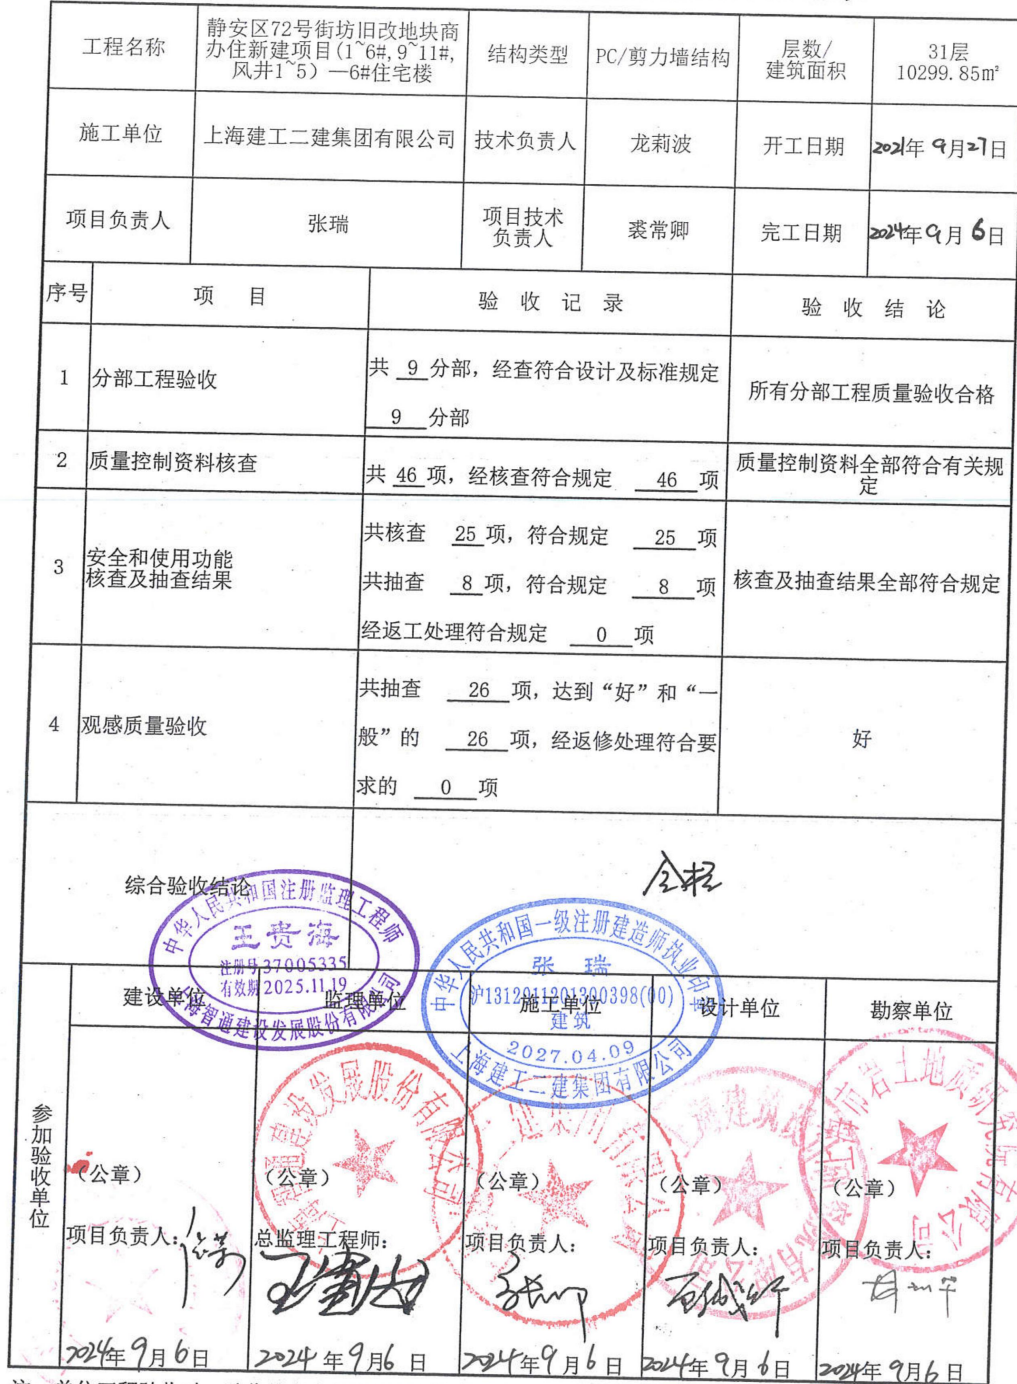 工程名称
静安区72号街坊旧改地块商
办住新建项目(1~6#,9~11#,
风井1~5）—6#住宅楼
结构类型
PC/剪力墙结构
层数/
建筑面积
31层
10299.85m²
施工单位
上海建工二建集团有限公司
技术负责人
龙莉波
开工日期
2021年 9月27日
项目负责人
张瑞
项目技术
负责人
裘常卿
完工日期
2024年9月6日
序号
项 目
验 收 记 录
验 收 结 论
1
分部工程验收
共 9 分部，经查符合设计及标准规定
9 分部
所有分部工程质量验收合格
2
质量控制资料核查
共 46 项，经核查符合规定 46 项
质量控制资料全部符合有关规
定
3
安全和使用功能
核查及抽查结果
共核查 25 项，符合规定 25 项
共抽查 8 项，符合规定 8 项
经返工处理符合规定 0 项
核查及抽查结果全部符合规定
4
观感质量验收
共抽查 26 项，达到“好”和“一
般”的 26 项，经返修处理符合要
求的 0 项
好
综合验收结论
合格
中华人民共和国注册监理工程师
王贵海
注册号37005335
有效期2025.11.19
上海智通建设发展股份有限公司
中华人民共和国一级注册建造师执业印章
张 瑞
沪1312911201300398(00)
建筑
2027.04.09
上海建工二建集团有限公司
参加验收单位
建设单位
监理单位
施工单位
设计单位
勘察单位
（公章）
（公章）
（公章）
（公章）
（公章）
项目负责人：
总监理工程师：
项目负责人：
项目负责人：
项目负责人：
2024年9月6日
2024年9月6日
2024年9月6日
2024年9月6日
2024年9月6日